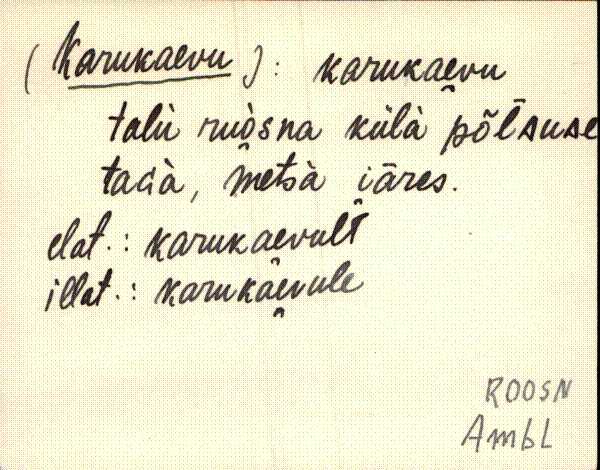 (Karukaevu): karukae̯vu
talù ruòsna külà põl̄suse
tacà, metsà iāres.
elat.: karukaevul̄t
illat.: karukäe̯vule
ROOSN
AmbL